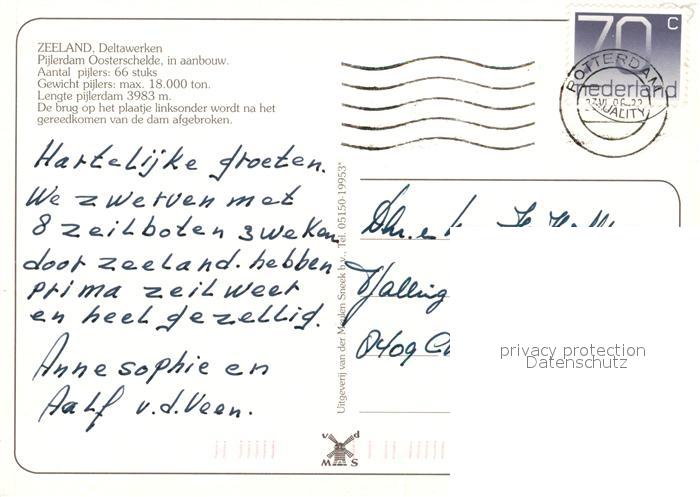 ZEELAND, Deltawerken
Pijlerdam Oosterschelde, in aanbouw.
Aantal pijlers: 66 stuks
Gewicht pijlers: max. 18.000 ton.
Lengte pijlerdam 3983 m.
De brug op het plaatje linksonder wordt na het
gereedkomen van de dam afgebroken.
70 c
nederland
ROTTERDAM
Hartelijke groeten.
We zwerven met
8 zeilboten 3 weken
door zeeland. hebben
prima zeil weer
en heel gezellig.
Annesophie en
Aalf v.d. Veen.
Uitgeverij van der Meulen Sneek b.v., Tel. 05150-19953*
Dhr. e
Malling
0409
privacy protection
Datenschutz
v d
M S